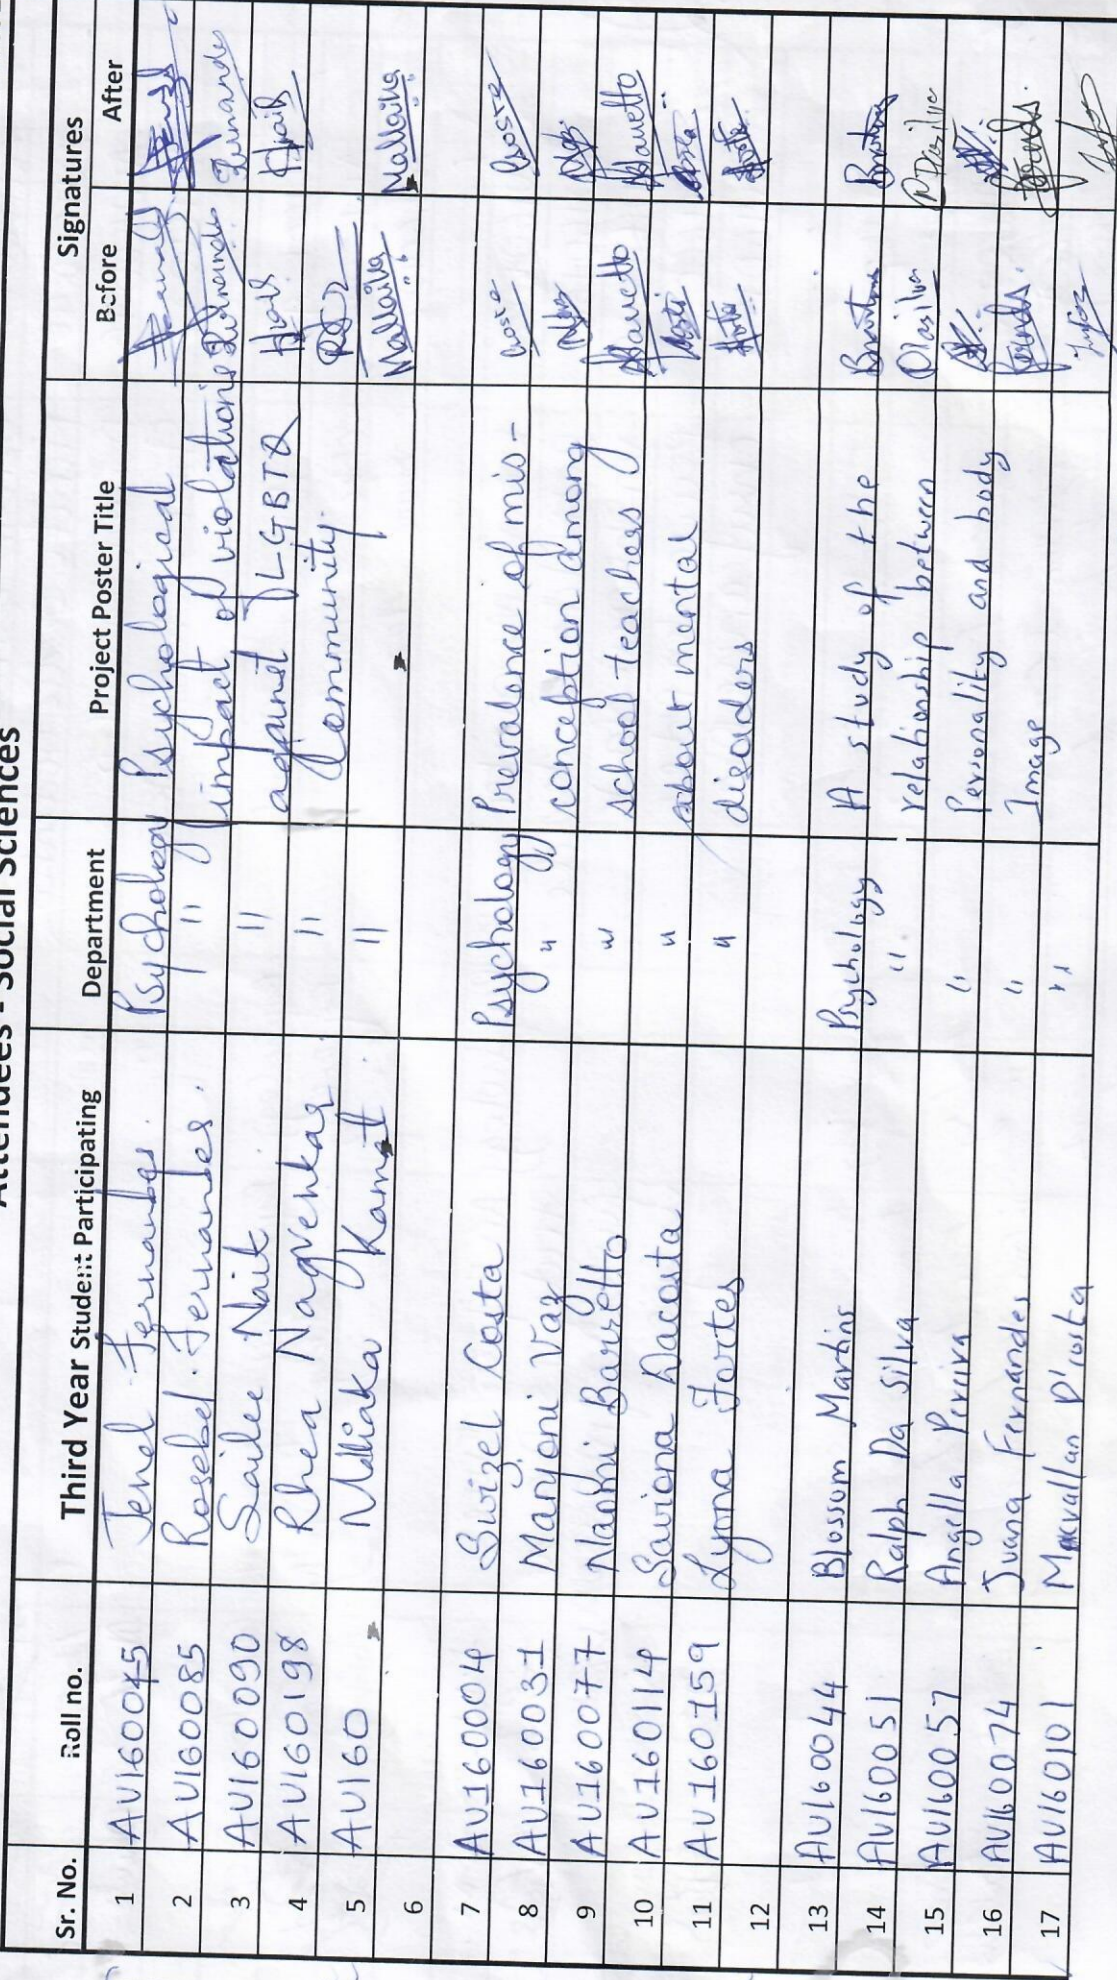 Attendees - Social Sciences
Sr. No. Roll no. Third Year Student Participating Department Project Poster Title Signatures
Before After
1 AU160045 Jenel Fernandes. Psychology Psychological
2 AU160085 Rosebel Fernandes. " impact of violations Fernandes Fernandes
3 AU160090 Sailee Naik " against LGBTQ
4 AU160198 Rhea Nagvenkar " Community.
5 AU160 Mallika Kamat "
6
7 AU160004 Swizel Costa Psychology Prevalence of mis- Costa Costa
8 AU160031 Manjoni Vaz " conception among
9 AU160077 Naomi Barretto " school teachers Barretto Barretto
10 AU160114 Saviona Dacosta " about mental
11 AU160159 Lynna Fortes " disorders
12
13 AU160044 Blossum Martins Psychology A study of the
14 AU160051 Ralph Da Silva " relationship between Dasilva Dasilva
15 AU160057 Angella Pereira " Personality and body
16 AU160074 Juana Fernandes " Image
17 AU160101 Macvallan D'costa "